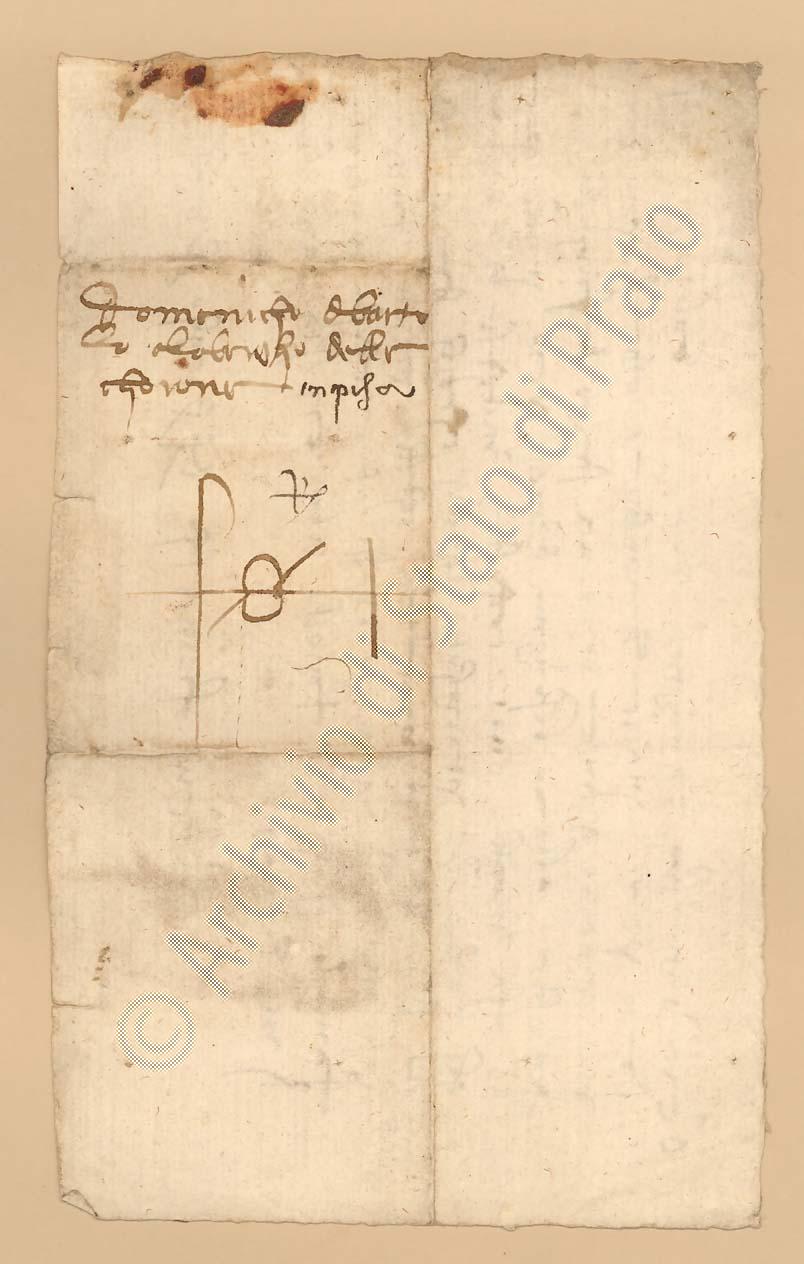 Domenicho di barto
lo alabergho delle
chorone in pisa
© Archivio di Stato di Prato